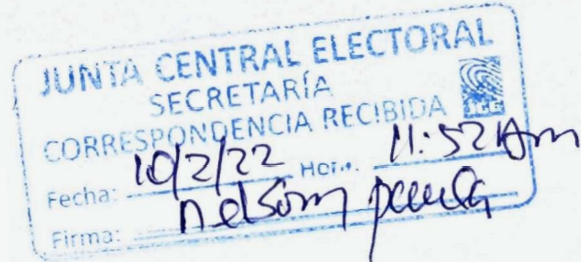 JUNTA CENTRAL ELECTORAL
SECRETARÍA
CORRESPONDENCIA RECIBIDA JCE
Fecha: 10/2/22 Hora: 11:52 Am
Firma: nelson paula